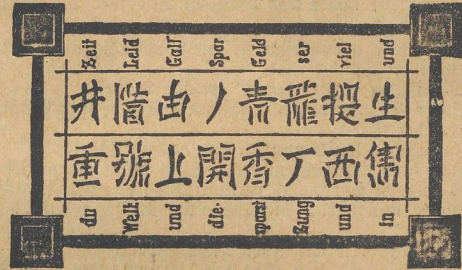 Zeit Leid Gall Spar Geld ser viel und
井 由 ノ 青 龍 提 生
重 號 上 開 香 丁 西 雋
du Welt und die. spart Zung und in